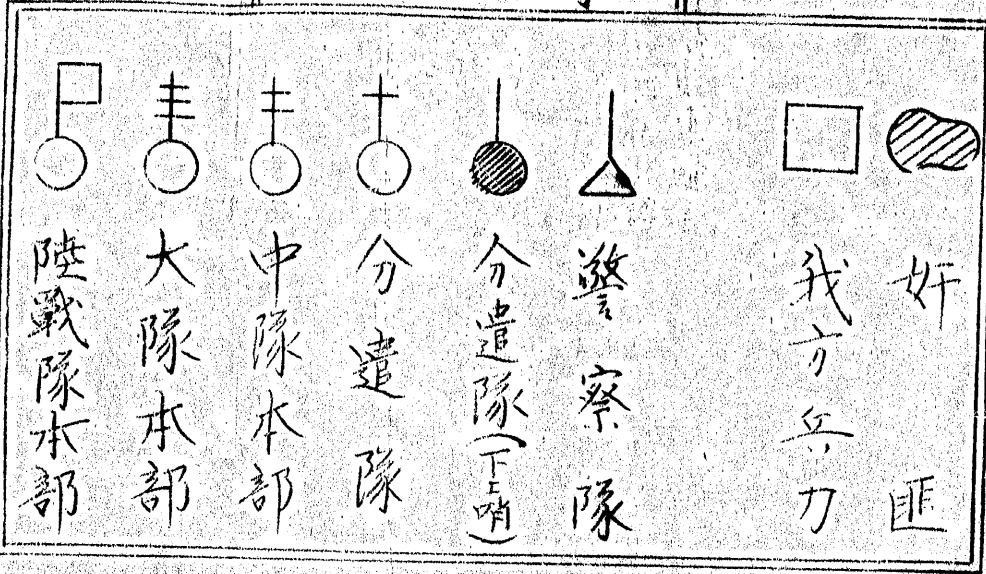 奸匪
我方兵力
警察隊
分遣隊(下士哨)
分遣隊
中隊本部
大隊本部
陸戰隊本部